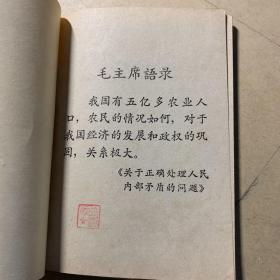 毛主席語录
我国有五亿多农业人
口，农民的情况如何，对于
我国经济的发展和政权的巩
固，关系极大。
《关于正确处理人民
内部矛盾的问题》